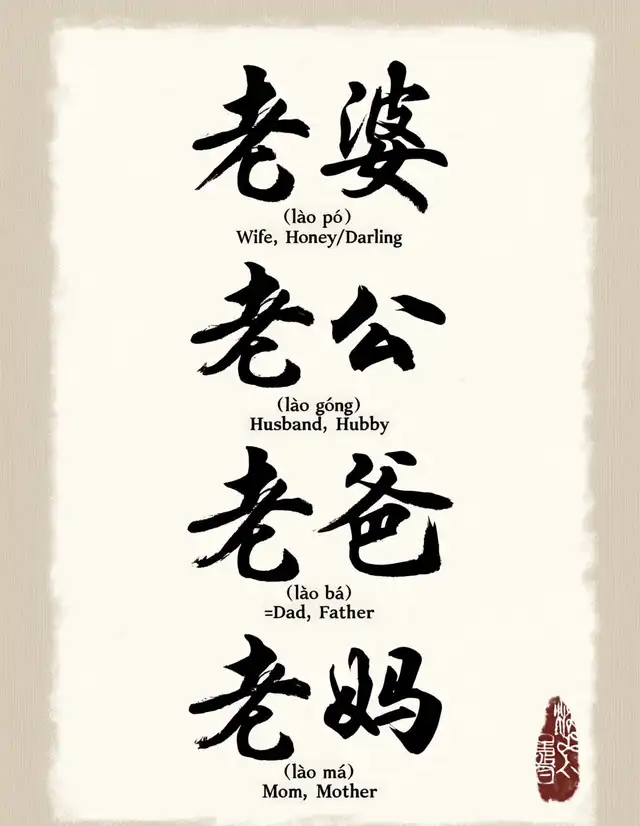 老婆
(lào pó)
Wife, Honey/Darling
老公
(lào góng)
Husband, Hubby
老爸
(lào bá)
=Dad, Father
老妈
(lào má)
Mom, Mother